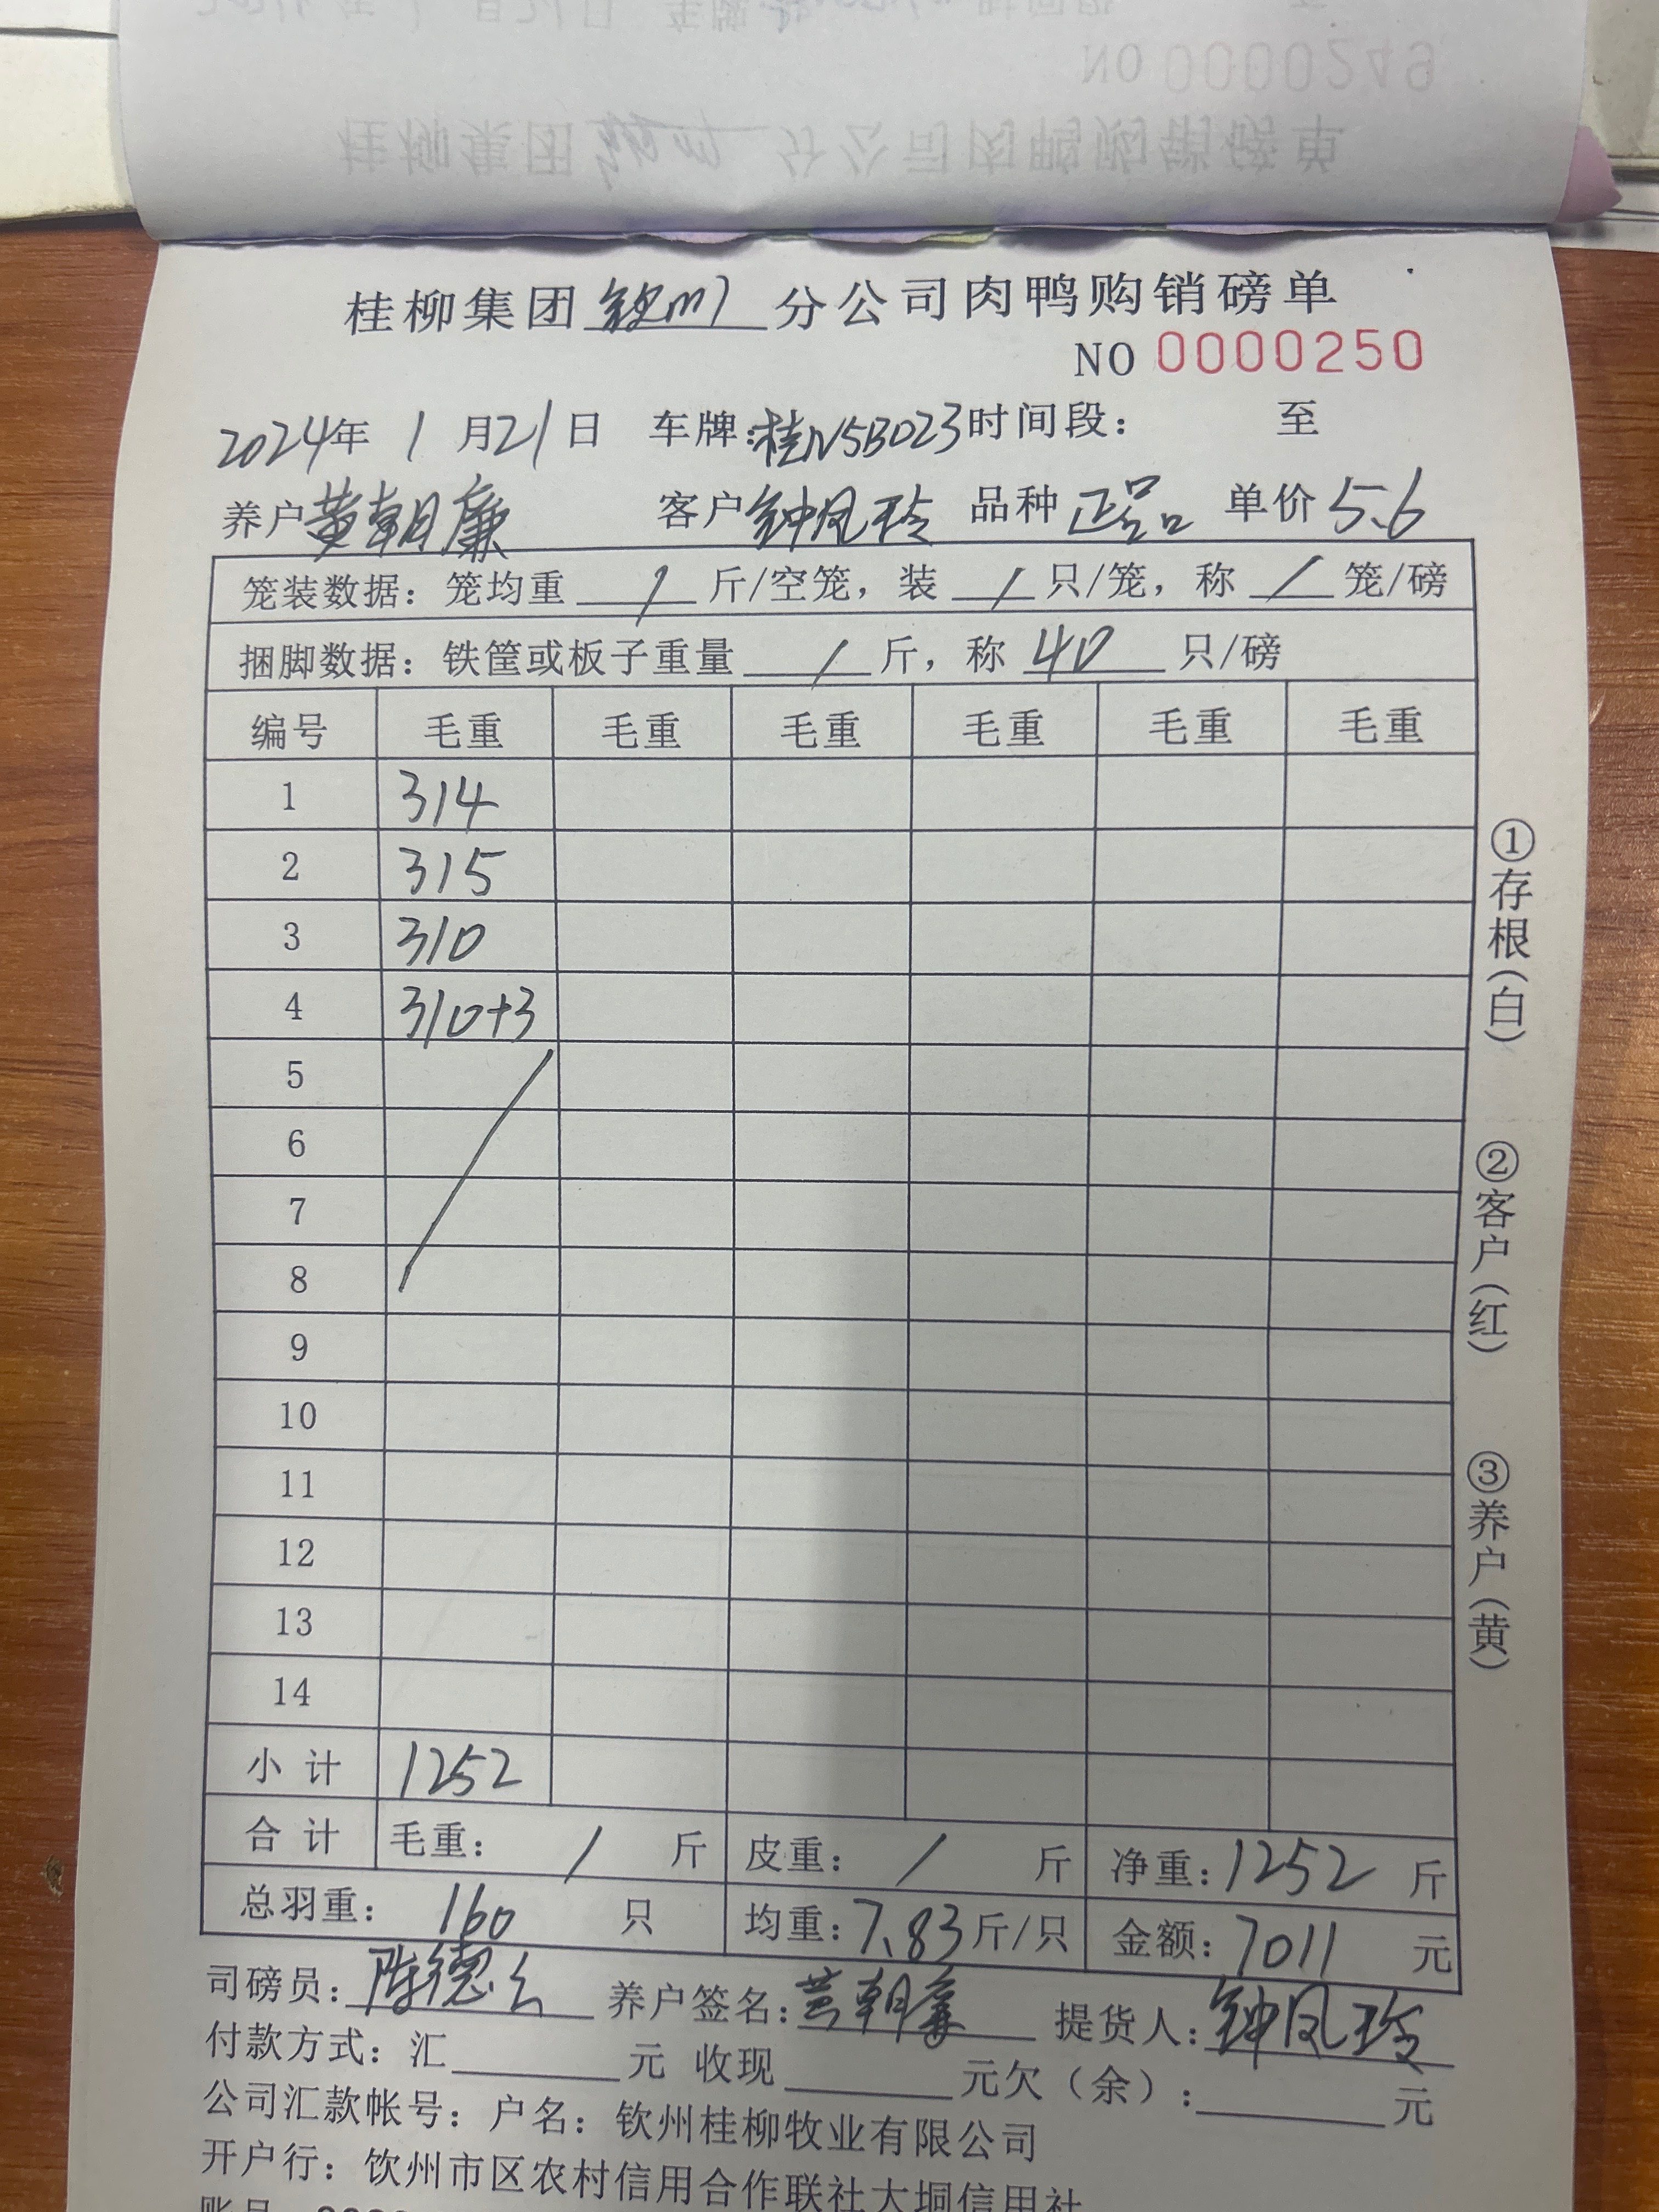 NO 0000249
桂柳集团钦州分公司肉鸭购销磅单
桂柳集团钦州分公司肉鸭购销磅单
NO 0000250
2024年 1 月21日 车牌:桂N5B023时间段: 至
养户黄朝廉 客户钟凤玲 品种 正品 单价5.6
笼装数据: 笼均重 / 斤/空笼, 装 / 只/笼, 称 / 笼/磅
捆脚数据: 铁筐或板子重量 / 斤, 称 40 只/磅
编号 毛重 毛重 毛重 毛重 毛重 毛重
1 314
2 315
3 310
4 310+3
5
6
7
8
9
10
11
12
13
14
小 计 1252
合 计 毛重: / 斤 皮重: / 斤 净重:1252 斤
总羽重: 160 只 均重:7.83斤/只 金额:7011 元
司磅员: 陈德 养户签名:黄朝廉 提货人:钟凤玲
付款方式: 汇 元 收现 元欠(余): 元
公司汇款帐号: 户名: 钦州桂柳牧业有限公司
开户行: 钦州市区农村信用合作联社大垌信用社
账号
①存根(白)
②客户(红)
③养户(黄)